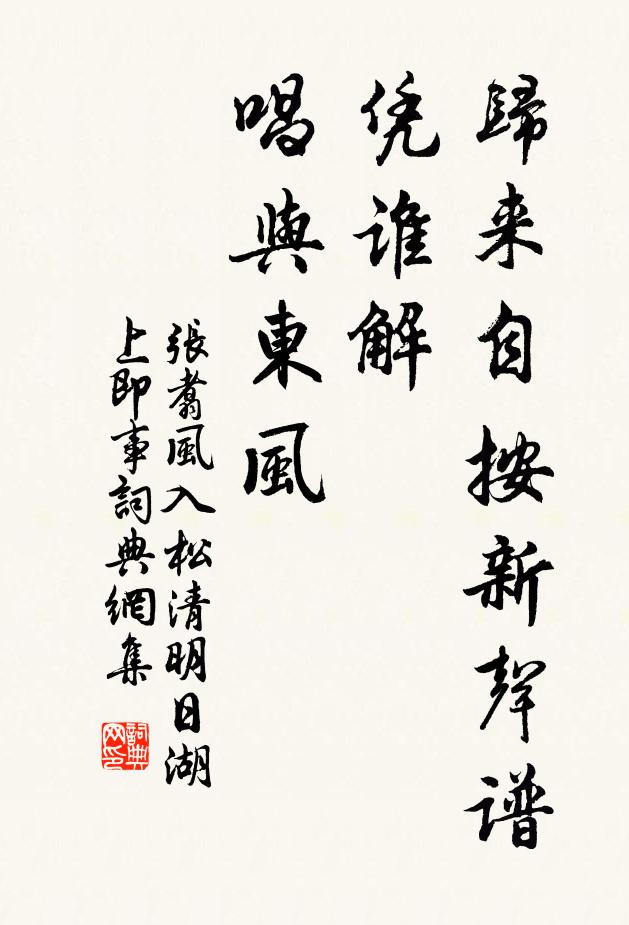 歸来自按新聲譜
凭谁解
唱與東風
張翥風入松清明日湖
上即事詞典網集
詞典网印